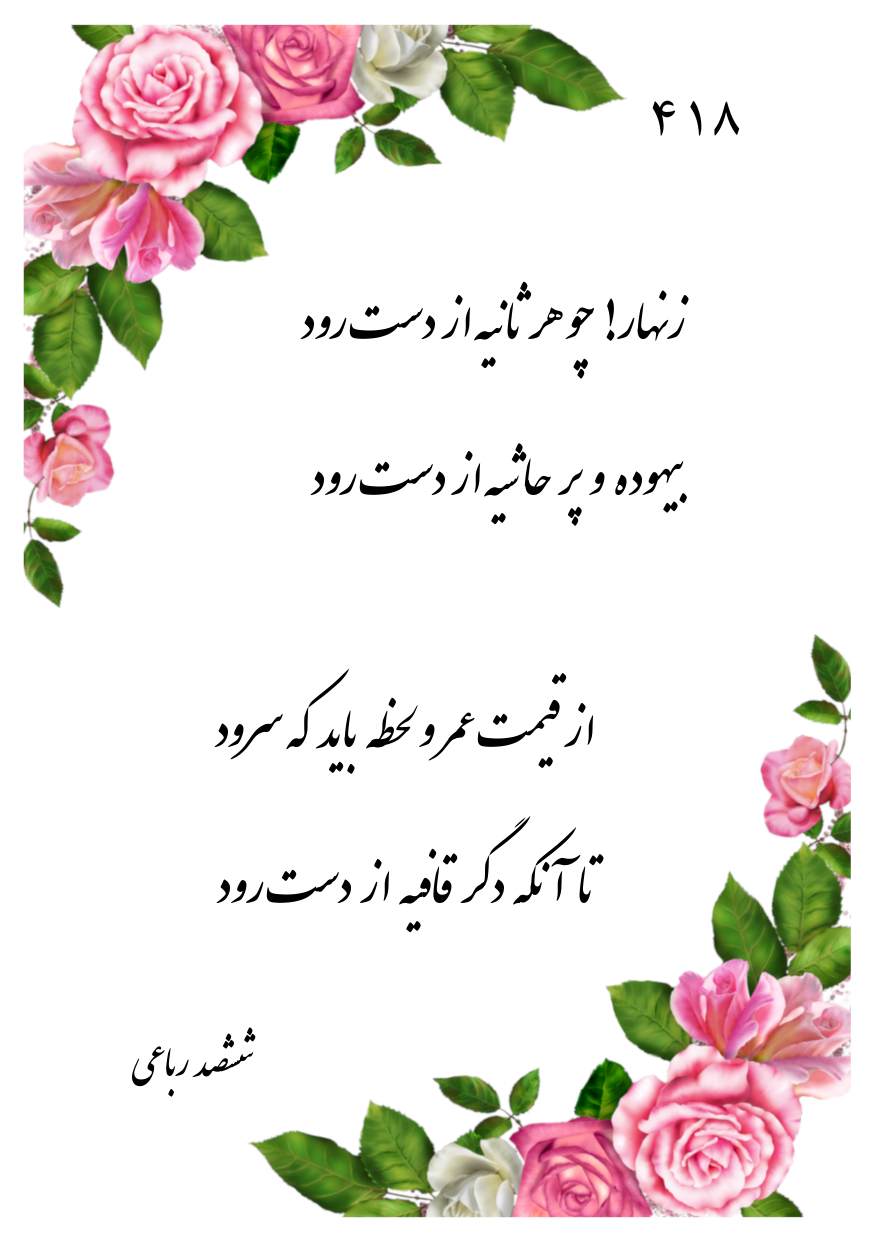 ۴۱۸
زنهار! چو هر ثانیه از دست رود
بیهوده و پر حاشیه از دست رود
از قیمت عمر و لحظه باید که سرود
تا آنکه دگر قافیه از دست رود
ششصد رباعی